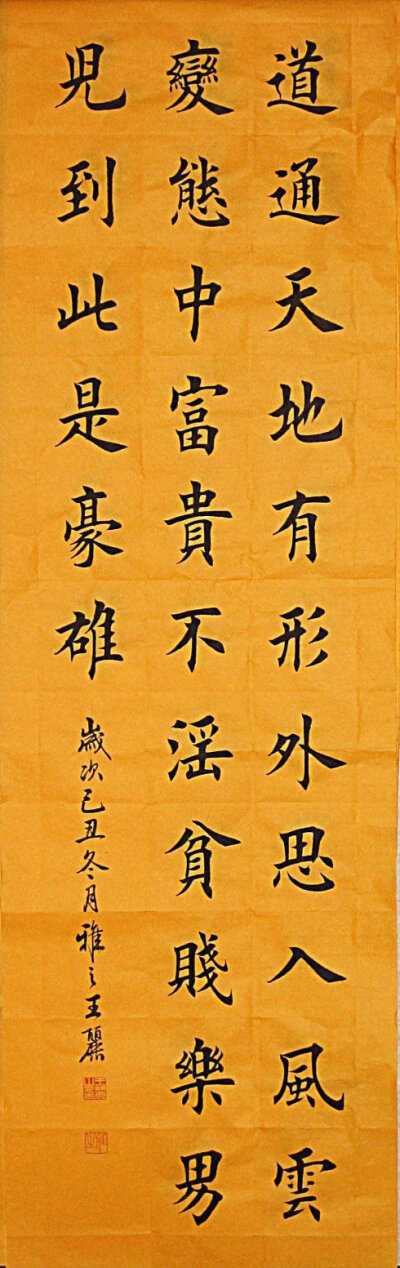 道通天地有形外思入風雲
變態中富貴不淫貧賤樂男
兒到此是豪雄
歲次己丑冬月雅之王麗